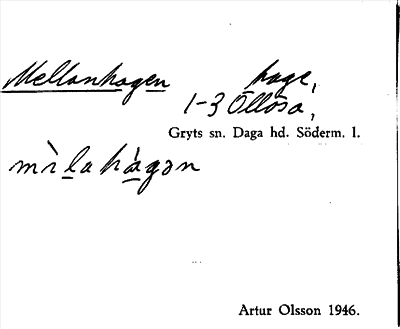 Mellanhagen hage,
1-3 Öllösa,
Gryts sn. Daga hd. Söderm. l.
mìlahàgən
Artur Olsson 1946.